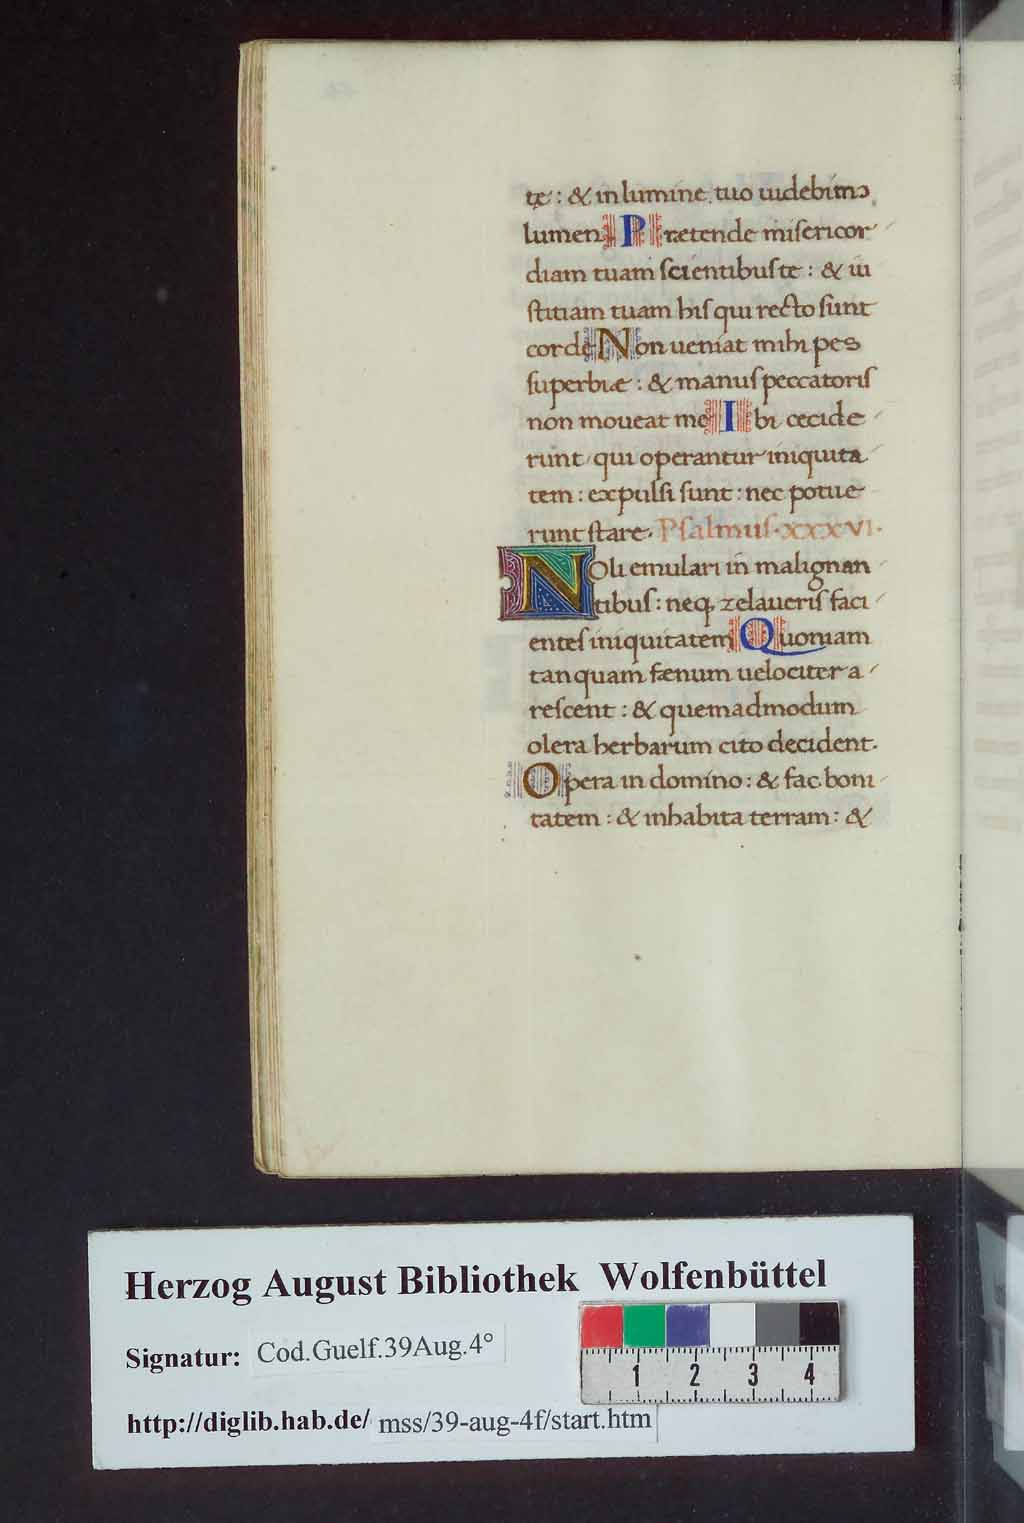 te : & in lumine tuo uidebimꝰ
lumen Pretende misericor
diam tuam scientibus te : & iu
stitiam tuam his qui recto sunt
corde Non ueniat mihi pes
superbiæ : & manus peccatoris
non moueat me Ibi cecide
runt qui operantur iniquita
tem : expulsi sunt : nec potue
runt stare. Psalmus . xxxvi .
Noli emulari in malignan
tibus : neq; zelaueris faci
entes iniquitatem Quoniam
tanquam fænum uelociter a
rescent : & quemadmodum
olera herbarum cito decident.
Opera in domino : & fac boni
tatem : & inhabita terram : &
Herzog August Bibliothek Wolfenbüttel
Signatur: Cod.Guelf.39Aug.4°
http://diglib.hab.de/ mss/39-aug-4f/start.htm
1 2 3 4